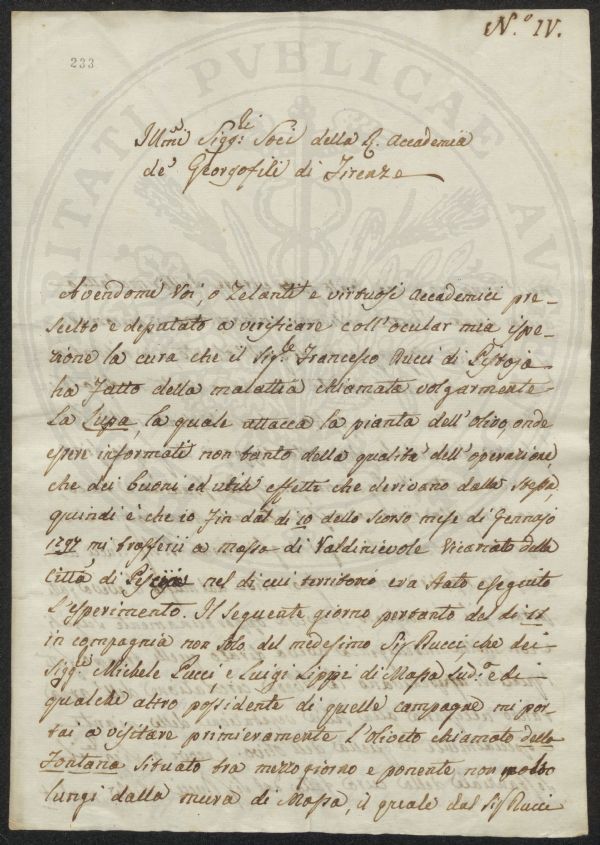 N.º IV.
233
PVBLICAE
Illmi Sigg:ri Soci della R. Accademia
de' Georgofili di Firenze
Avendomi Voi, o Zelanti e virtuosi Accademici pre-
scelto e deputato a verificare coll'ocular mia ispe-
zione la cura che il Sig.re Francesco Bucci di Pistoja
ha fatto della malattia chiamata volgarmente
La Lupa, la quale attacca la pianta dell'olivo, onde
essere informati non tanto della qualità dell'operazione,
che dei buoni ed utili effetti che derivano dalla stessa,
quindi è che io fin dal dì 10 dello scorso mese di Gennajo
1797 mi trasferii a Massa di Valdinievole Vicariato della
Città di Pescia nel di cui territorio era stato eseguito
L'esperimento. Il seguente giorno pertanto del dì 11
in compagnia non solo del medesimo Sig Bucci, che dei
Sigg.ri Michele Pucci, e Luigi Lippi di Massa Sud.a e di
qualche altro possidente di quelle campagne mi por-
tai a visitare primieramente L'oliveto chiamato della
Fontana situato tra mezzogiorno e ponente non molto
lungi dalla mura di Massa, il quale dal Sig Bucci